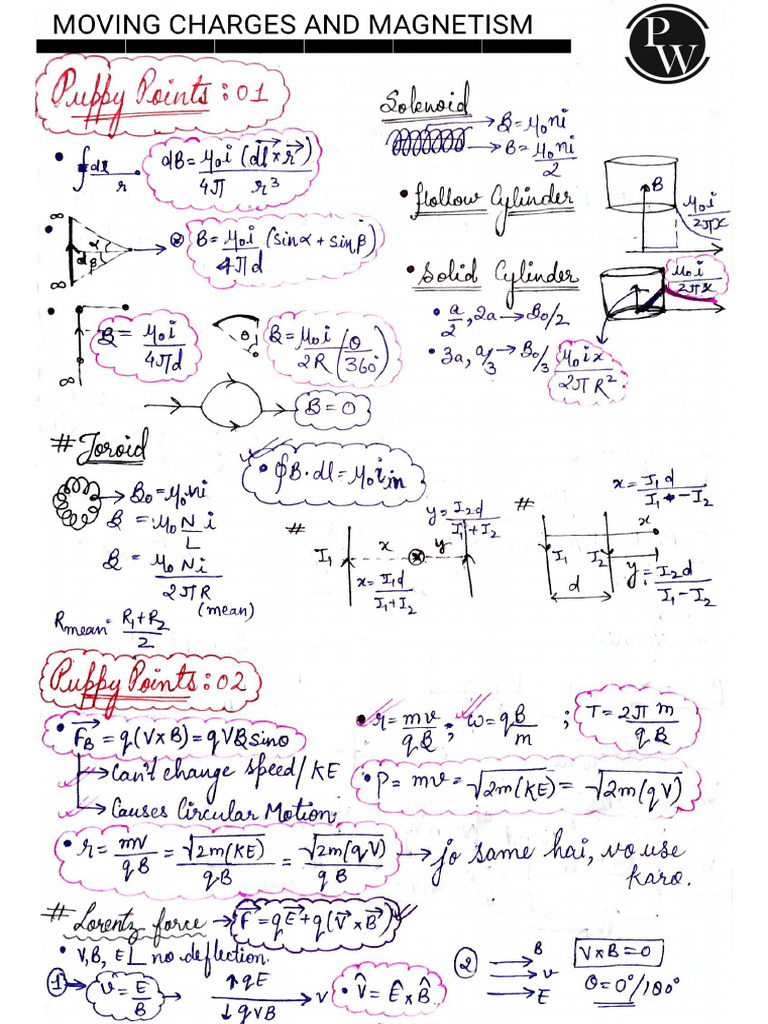 MOVING CHARGES AND MAGNETISM
PW
Puppy Points: 01
∮ dl / r
dB = μ₀i (dl⃗ × r⃗) / 4π r³
∞
α
d
β
∞
⊗ B = μ₀i (sinα + sinβ) / 4πd
∞
B = μ₀i / 4πd
θ
B = μ₀i / 2R (θ / 360°)
B = 0
Solenoid
B = μ₀ni
B = μ₀ni / 2
Hollow Cylinder
B
μ₀i / 2πx
Solid Cylinder
μ₀i / 2πx
a/2, 2a → B₀/2
3a, a/3 → B₀/3
μ₀ix / 2πR²
# Toroid
B₀ = μ₀ni
B = μ₀ N i / L
B = μ₀ N i / 2πR (mean)
Rmean = R₁+R₂ / 2
∮B·dl = μ₀iin
#
I₁
x
y
y = I₂d / I₁+I₂
x = I₁d / I₁+I₂
#
x = I₁d / I₁-I₂
x
I₁
I₂
d
y = I₂d / I₁-I₂
Puppy Points: 02
F⃗B = q(V×B) = qVB sinθ
Can't change speed/KE
Causes Circular Motion
r = mv / qB ; ω = qB / m ; T = 2π m / qB
P = mv = √2m(KE) = √2m(qV)
r = mv / qB = √2m(KE) / qB = √2m(qV) / qB → jo same hai, vo use
karo.
# Lorentz force → F⃗ = qE⃗ + q(V⃗ × B⃗)
V, B, E ⊥ no deflection.
① v = E / B → ↑qE ↓qVB V
V̂ = Ê × B̂
② B
v
E
V×B = 0
θ = 0°/180°